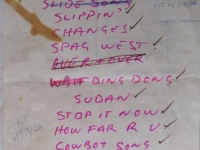 SLIDE SONG
SLIPPIN'
CHANGES
SPAG WEST
OVER & OVER
WAH DING DONG
SUDAN
STOP IT NOW
HOW FAR R U
COWBOY SONG